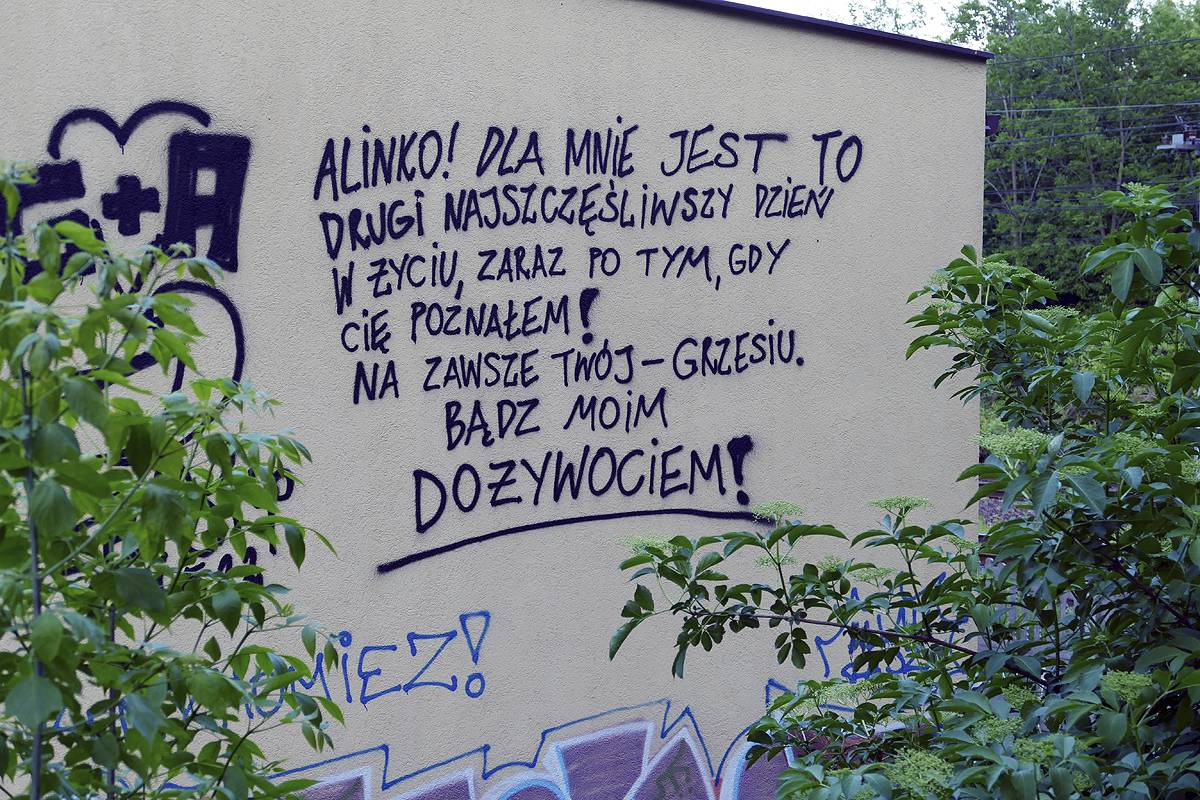 G+A
ALiNKO! DLA MNiE JEST TO
DRUGi NAJSZCZĘŚLiWSZY DZIEŃ
W ŻYCiU, ZARAZ PO TYM, GDY
CiĘ POZNAŁEM!
NA ZAWSZE TWÓJ – GRZESiU.
BĄDZ MOiM
DOŻYWOCiEM!